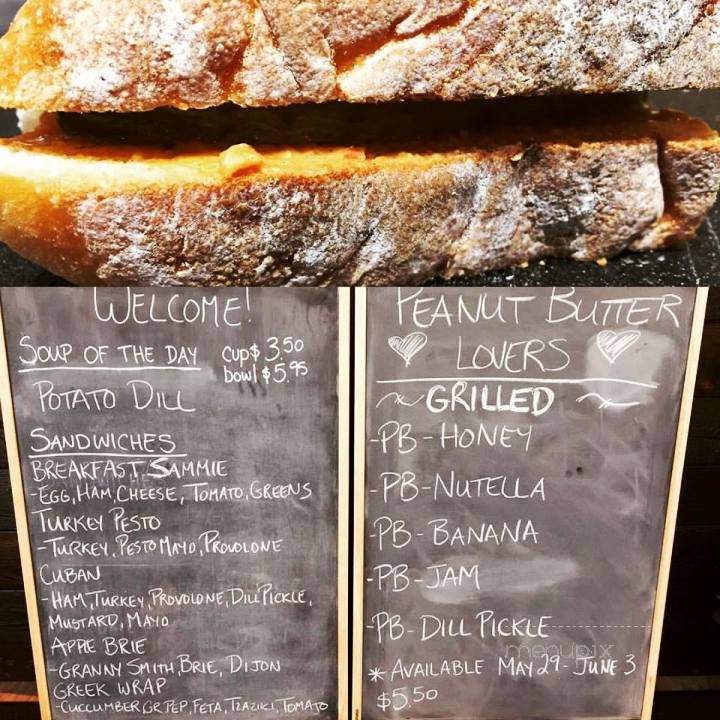 WELCOME!
SOUP OF THE DAY cup $3.50
bowl $5.95
POTATO DILL
SANDWICHES
BREAKFAST SAMMIE
-EGG, HAM, CHEESE, TOMATO, GREENS
TURKEY PESTO
-TURKEY, PESTO MAYO, PROVOLONE
CUBAN
-HAM, TURKEY, PROVOLONE, DILL PICKLE,
MUSTARD, MAYO
APPLE BRIE
-GRANNY SMITH, BRIE, DIJON
GREEK WRAP
-CUCCUMBER, GR PEP, FETA, TZAZIKI, TOMATO
PEANUT BUTTER
LOVERS
~GRILLED~
-PB-HONEY
-PB-NUTELLA
-PB-BANANA
-PB-JAM
-PB-DILL PICKLE
menupix
* AVAILABLE MAY 29-JUNE 3
$5.50